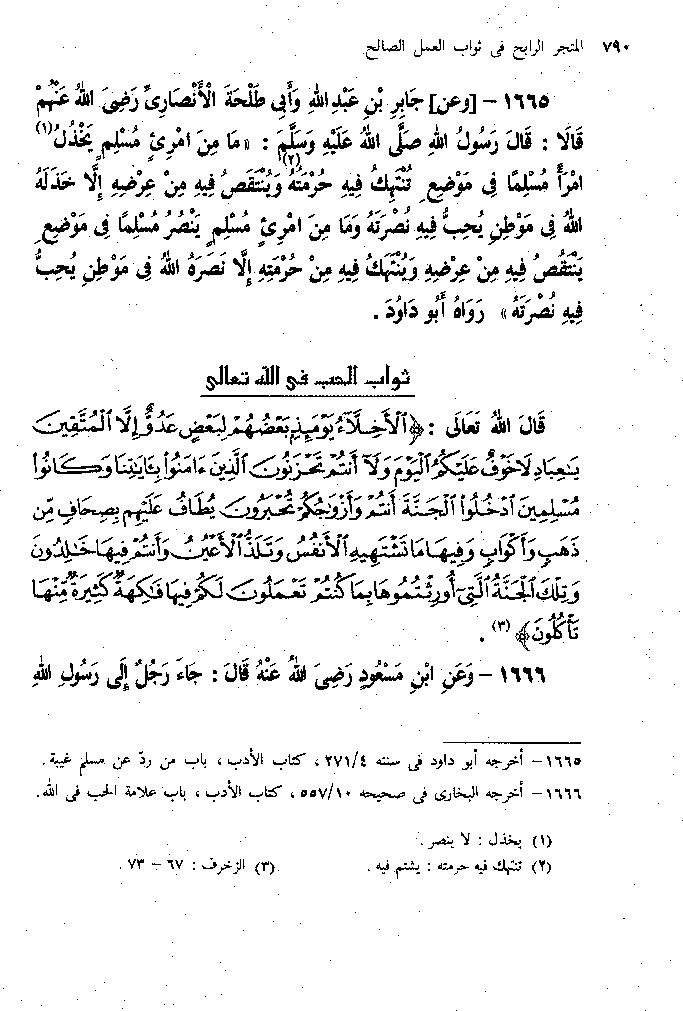 ٧٩٠ المتجر الرابح فى ثواب العمل الصالح
١٦٦٥ – [وعن] جَابِرِ بْنِ عَبْدِ اللهِ وَأَبِى طَلْحَةَ الْأَنْصَارِىِّ رَضِىَ اللهُ عَنْهُمْ
قَالَا : قَالَ رَسُولُ اللهِ صَلَّى اللهُ عَلَيْهِ وَسَلَّمَ : « مَا مِنَ امْرِئٍ مُسْلِمٍ يَخْذُلُ (١)
امْرَأً مُسْلِمًا فِى مَوْضِعٍ تُنْتَهَكُ (٢) فِيهِ حُرْمَتُهُ وَيُنْتَقَصُ فِيهِ مِنْ عِرْضِهِ إِلَّا خَذَلَهُ
اللهُ فِى مَوْطِنٍ يُحِبُّ فِيهِ نُصْرَتَهُ وَمَا مِنَ امْرِئٍ مُسْلِمٍ يَنْصُرُ مُسْلِمًا فِى مَوْضِعٍ
يُنْتَقَصُ فِيهِ مِنْ عِرْضِهِ وَيُنْتَهَكُ فِيهِ مِنْ حُرْمَتِهِ إِلَّا نَصَرَهُ اللهُ فِى مَوْطِنٍ يُحِبُّ
فِيهِ نُصْرَتَهُ » رَوَاهُ أَبُو دَاوُدَ .
ثواب الحب فى الله تعالى
قَالَ اللهُ تَعَالَى : ﴿ ٱلْأَخِلَّآءُ يَوْمَئِذٍ بَعْضُهُمْ لِبَعْضٍ عَدُوٌّ إِلَّا ٱلْمُتَّقِينَ
يَٰعِبَادِ لَا خَوْفٌ عَلَيْكُمُ ٱلْيَوْمَ وَلَآ أَنتُمْ تَحْزَنُونَ ٱلَّذِينَ ءَامَنُوا۟ بِـَٔايَٰتِنَا وَكَانُوا۟
مُسْلِمِينَ ٱدْخُلُوا۟ ٱلْجَنَّةَ أَنتُمْ وَأَزْوَٰجُكُمْ تُحْبَرُونَ يُطَافُ عَلَيْهِم بِصِحَافٍ مِّن
ذَهَبٍ وَأَكْوَابٍ وَفِيهَا مَا تَشْتَهِيهِ ٱلْأَنفُسُ وَتَلَذُّ ٱلْأَعْيُنُ وَأَنتُمْ فِيهَا خَٰلِدُونَ
وَتِلْكَ ٱلْجَنَّةُ ٱلَّتِىٓ أُورِثْتُمُوهَا بِمَا كُنتُمْ تَعْمَلُونَ لَكُمْ فِيهَا فَٰكِهَةٌ كَثِيرَةٌ مِّنْهَا
تَأْكُلُونَ ﴾ (٣) .
١٦٦٦ – وَعَنِ ابْنِ مَسْعُودٍ رَضِىَ اللهُ عَنْهُ قَالَ : جَاءَ رَجُلٌ إِلَى رَسُولِ اللهِ
١٦٦٥ – أخرجه أبو داود فى سننه ٢٧١/٤ ، كتاب الأدب ، باب من ردّ عن مسلم غيبة .
١٦٦٦ – أخرجه البخارى فى صحيحه ٥٥٧/١٠ ، كتاب الأدب ، باب علامة الحب فى الله .
(١) يخذل : لا ينصر .
(٢) تنتهك فيه حرمته : يشتم فيه . (٣) الزخرف : ٦٧ – ٧٣ .